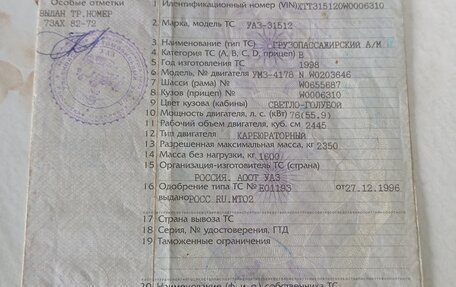 Особые отметки
ВЫДАН ТР.НОМЕР
73АХ 82-72
1 Идентификационный номер (VIN) XTT315120W0006310
2 Марка, модель ТС УАЗ-31512
3 Наименование (тип ТС) ГРУЗОПАССАЖИРСКИЙ А/М
4 Категория ТС (А, В, С, D, прицеп) В
5 Год изготовления ТС 1998
6 Модель, № двигателя УМЗ-4178 N W0203646
7 Шасси (рама) № W0655687
8 Кузов (прицеп) № W0006310
9 Цвет кузова (кабины) СВЕТЛО-ГОЛУБОЙ
10 Мощность двигателя, л. с. (кВт) 76(55.9)
11 Рабочий объем двигателя, куб. см 2445
12 Тип двигателя КАРБЮРАТОРНЫЙ
13 Разрешенная максимальная масса, кг 2350
14 Масса без нагрузки, кг 1600
15 Организация-изготовитель ТС (страна)
РОССИЯ, АООТ УАЗ
16 Одобрение типа ТС № Е01193 от 27.12.1996
выдано РОСС RU.МТ02
17 Страна вывоза ТС
18 Серия, № удостоверения, ГТД
19 Таможенные ограничения
20 Наименование (ф. и. о.) собственника ТС